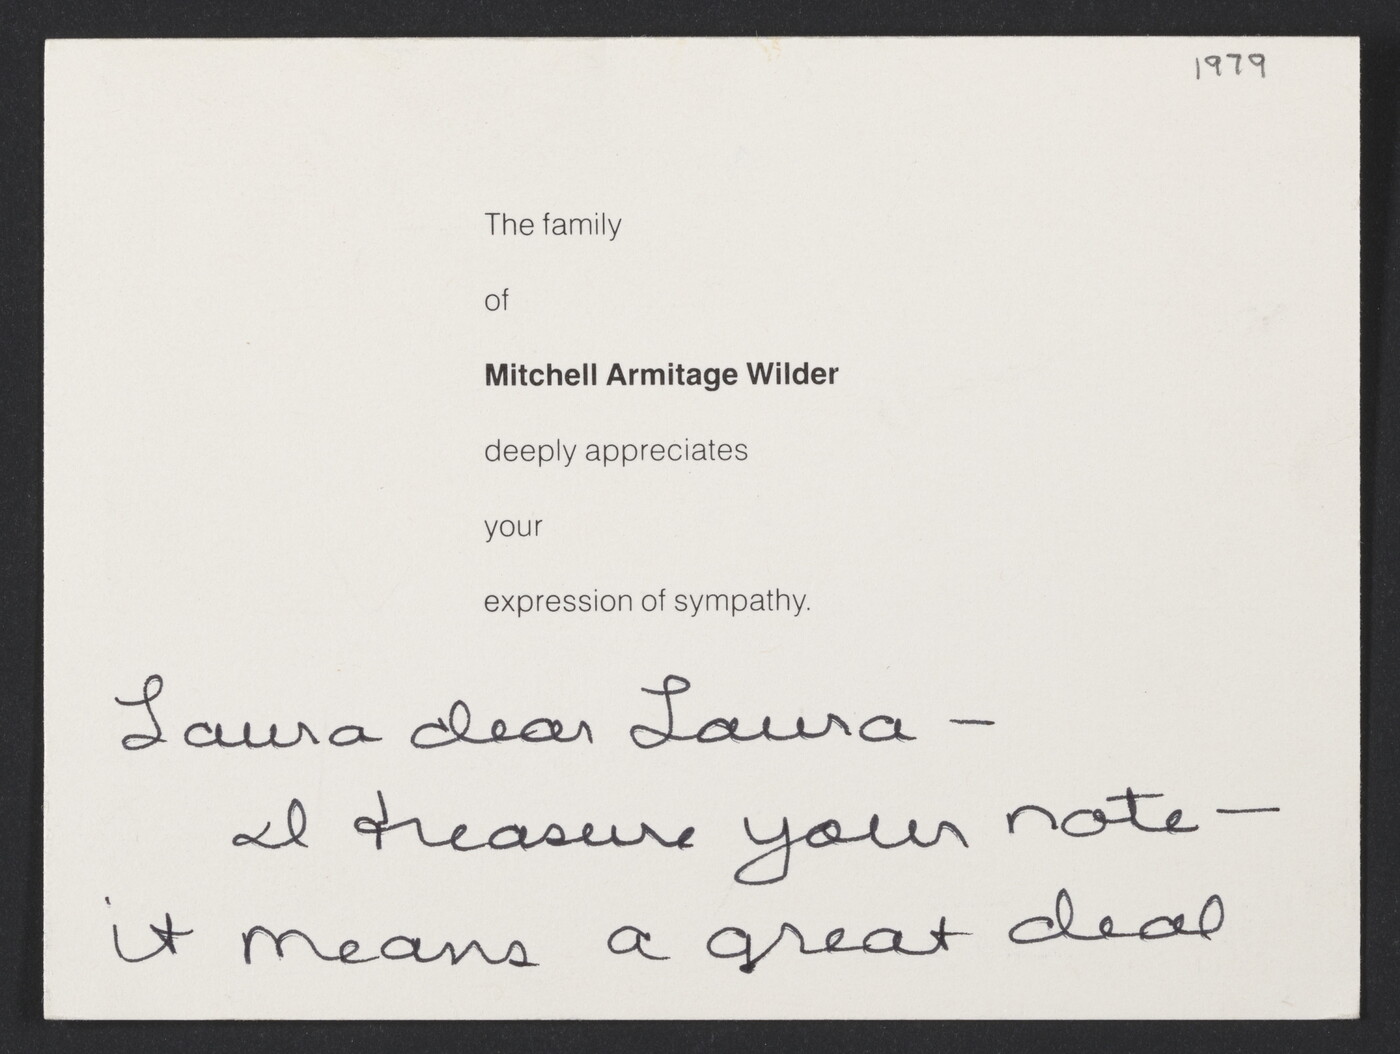 1979
The family
of
Mitchell Armitage Wilder
deeply appreciates
your
expression of sympathy.
Laura dear Laura —
I treasure your note —
it means a great deal